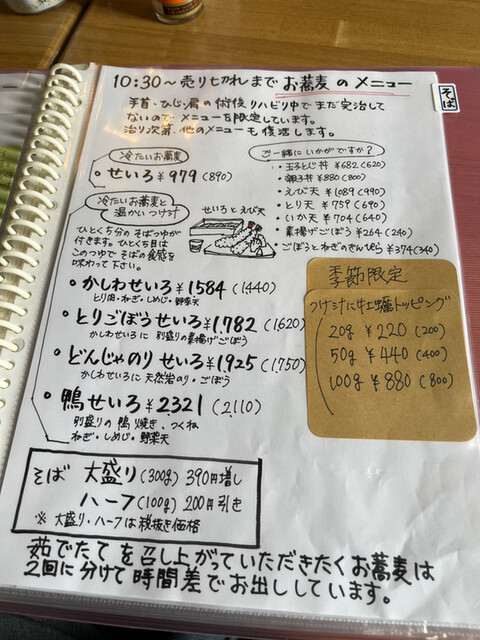 10:30~売り切れまでお蕎麦のメニュー
そば
手首、ひじ、肩の術後リハビリ中でまだ完治して
ないのでメニューを限定しています。
治り次第、他のメニューも復活します。
冷たいお蕎麦
・せいろ ¥979 (890)
冷たいお蕎麦と
温かいつけ汁
ひとくち分のそばつゆが
付きます。ひとくち目は
このつゆでそばの食感を
味わって下さい。
せいろとえび天
ご一緒にいかがですか?
・玉子とじ丼 ¥682 (620)
・親子丼 ¥880 (800)
・えび天 ¥1,089 (990)
・とり天 ¥759 (690)
・いか天 ¥704 (640)
・素揚げごぼう ¥264 (240)
・ごぼうとねぎのきんぴら ¥374 (340)
・かしわせいろ ¥1584 (1440)
とり肉・ねぎ・しめじ・野菜天
・とりごぼうせいろ ¥1,782 (1620)
かしわせいろに 別盛りの素揚げごぼう
・どんじゃのりせいろ ¥1,925 (1,750)
かしわせいろに 天然岩のり・ごぼう
・鴨せいろ ¥2321 (2,110)
別盛りの鴨焼き、つくね
ねぎ・しめじ・野菜天
季節限定
つけ汁に牡蠣トッピング
20g ¥220 (200)
50g ¥440 (400)
100g ¥880 (800)
そば 大盛り(300g) 390円増し
ハーフ(100g) 200円引き
※大盛り・ハーフは税抜き価格
茹でたてを召し上がっていただきたくお蕎麦は
2回に分けて時間差でお出ししています。